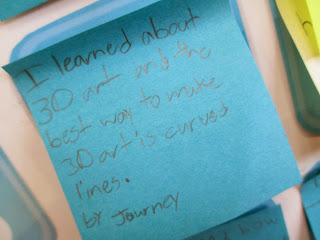 I learned about
3D art and the
best way to make
3D art is curved
lines.
by Journey